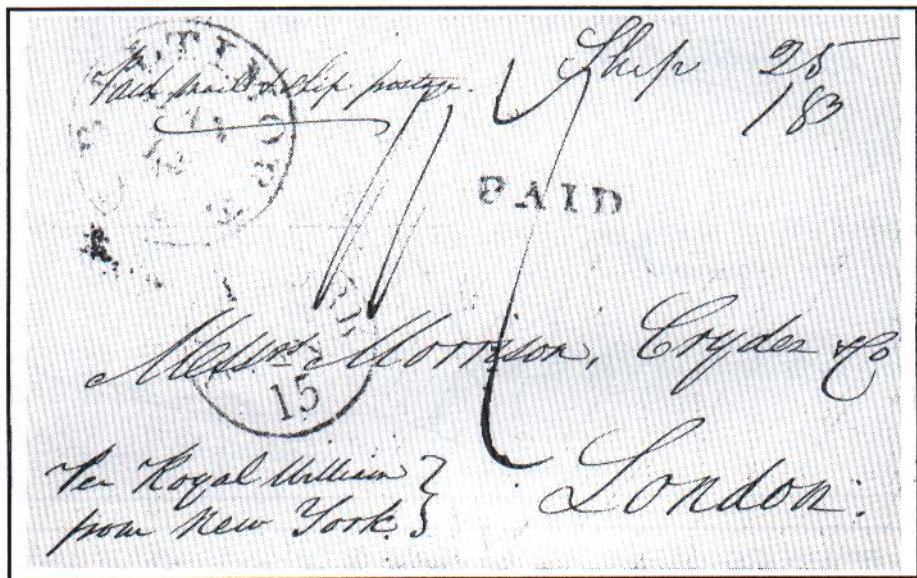 Paid mail & ship postage.
Ship 25
183
PAID
Messrs Morrison, Cryder & Co
15
London.
Per Royal William
from New York.